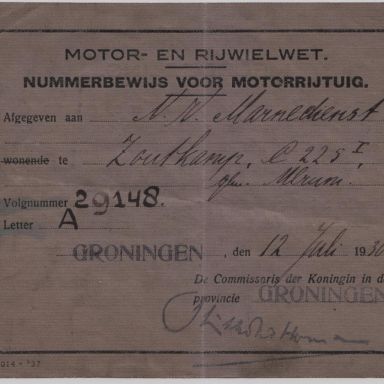 MOTOR- EN RIJWIELWET.
NUMMERBEWIJS VOOR MOTORRIJTUIG.
Afgegeven aan N.V. Marnedienst
wonende te Zoutkamp, C 225 I
gem. Ulrum.
Volgnummer 29148.
Letter A
GRONINGEN, den 12 Juli 193
De Commissaris der Koningin in de
provincie GRONINGEN
014 - '37